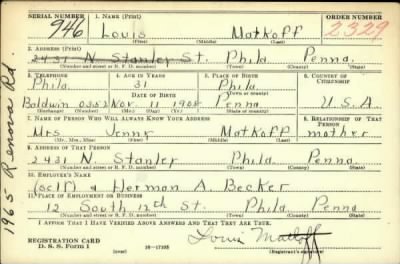 SERIAL NUMBER 1. NAME (Print) ORDER NUMBER
946 Louis Matkoff 2329
(First) (Middle) (Last)
2. ADDRESS (Print)
2431 N. Stanley St. Phila Penna.
(Number and street or R. F. D. number) (Town) (County) (State)
3. TELEPHONE 4. AGE IN YEARS 5. PLACE OF BIRTH 6. COUNTRY OF CITIZENSHIP
Phila. 31 Phila
DATE OF BIRTH
Baldwin 0352 Nov. 11 1908 Penna U.S.A.
(Exchange) (Number) (Mo.) (Day) (Yr.) (State or country)
7. NAME OF PERSON WHO WILL ALWAYS KNOW YOUR ADDRESS 8. RELATIONSHIP OF THAT PERSON
Mrs Jenny Matkoff mother
(Mr., Mrs., Miss) (First) (Middle) (Last)
9. ADDRESS OF THAT PERSON
2431 N. Stanley Phila Penna.
(Number and street or R. F. D. number) (Town) (County) (State)
10. EMPLOYER'S NAME
(self) & Herman A. Becker
11. PLACE OF EMPLOYMENT OR BUSINESS
12 South 12th St. Phila Penna
(Number and street or R. F. D. number) (Town) (County) (State)
I AFFIRM THAT I HAVE VERIFIED ABOVE ANSWERS AND THAT THEY ARE TRUE.
REGISTRATION CARD
D. S. S. Form 1 (over) 16—17105 Louis Matkoff
(Registrant's signature)
1965 Renova Rd.